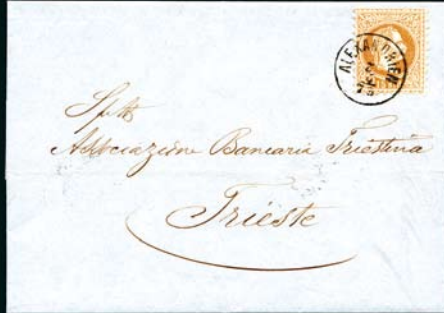 ALEXANDRIEN
Spett.
Associazione Bancaria Triestina
Trieste